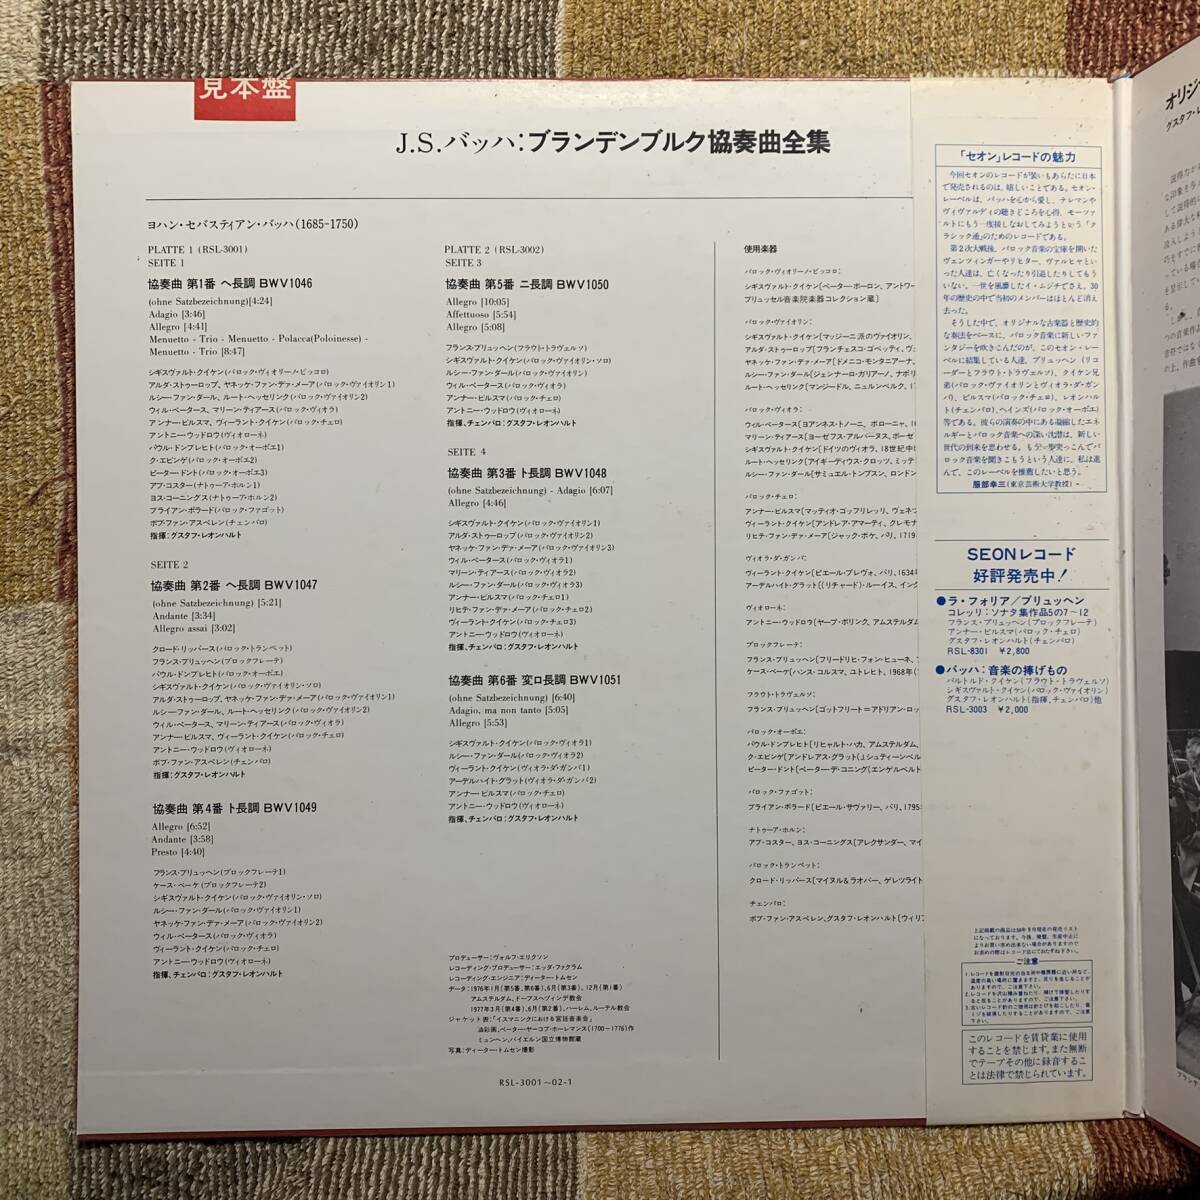 見本盤
J.S.バッハ:ブランデンブルク協奏曲全集
ヨハン・セバスティアン・バッハ(1685-1750)
PLATTE 1 (RSL-3001)
SEITE 1
協奏曲 第1番 ヘ長調 BWV1046
(ohne Satzbezeichnung)[4:24]
Adagio [3:46]
Allegro [4:41]
Menuetto - Trio - Menuetto - Polacca(Poloinesse) -
Menuetto - Trio [8:47]
シギスヴァルト・クイケン(バロック・ヴァイオリーノ・ピッコロ)
アルダ・ストゥーロップ、ヤネッケ・ファン・デァ・メーア(バロック・ヴァイオリン1)
ルシー・ファン・ダール、ルート・ヘッセリンク(バロック・ヴァイオリン2)
ウィル・ペータース、マリーン・ティアース(バロック・ヴィオラ)
アンナー・ビルスマ、ヴィーラント・クイケン(バロック・チェロ)
アントニー・ウッドロウ(ヴィオローネ)
パウル・ドンブレヒト(バロック・オーボエ1)
ク・エビンゲ(バロック・オーボエ2)
ピーター・ドント(バロック・オーボエ3)
アブ・コスター(ナトゥーア・ホルン1)
ヨス・コーニングス(ナトゥーア・ホルン2)
ブライアン・ポラード(バロック・ファゴット)
ボブ・ファン・アスペレン(チェンバロ)
指揮:グスタフ・レオンハルト
SEITE 2
協奏曲 第2番 ヘ長調 BWV1047
(ohne Satzbezeichnung) [5:21]
Andante [3:34]
Allegro assai [3:02]
クロード・リッパース(バロック・トランペット)
フランス・ブリュッヘン(ブロックフレーテ)
パウル・ドンブレヒト(バロック・オーボエ)
シギスヴァルト・クイケン(バロック・ヴァイオリン・ソロ)
アルダ・ストゥーロップ、ヤネッケ・ファン・デァ・メーア(バロック・ヴァイオリン1)
ルシー・ファン・ダール、ルート・ヘッセリンク(バロック・ヴァイオリン2)
ウィル・ペータース、マリーン・ティアース(バロック・ヴィオラ)
アンナー・ビルスマ、ヴィーラント・クイケン(バロック・チェロ)
アントニー・ウッドロウ(ヴィオローネ)
ボブ・ファン・アスペレン(チェンバロ)
指揮:グスタフ・レオンハルト
協奏曲 第4番 ト長調 BWV1049
Allegro [6:52]
Andante [3:58]
Presto [4:40]
フランス・ブリュッヘン(ブロックフレーテ1)
ケース・ベーケ(ブロックフレーテ2)
シギスヴァルト・クイケン(バロック・ヴァイオリン・ソロ)
ルシー・ファン・ダール(バロック・ヴァイオリン1)
ヤネッケ・ファン・デァ・メーア(バロック・ヴァイオリン2)
ウィル・ペータース(バロック・ヴィオラ)
ヴィーラント・クイケン(バロック・チェロ)
アントニー・ウッドロウ(ヴィオローネ)
指揮、チェンバロ:グスタフ・レオンハルト
PLATTE 2 (RSL-3002)
SEITE 3
協奏曲 第5番 ニ長調 BWV1050
Allegro [10:05]
Affettuoso [5:54]
Allegro [5:08]
フランス・ブリュッヘン(フラウト・トラヴェルソ)
シギスヴァルト・クイケン(バロック・ヴァイオリン・ソロ)
ルシー・ファン・ダール(バロック・ヴァイオリン)
ウィル・ペータース(バロック・ヴィオラ)
アンナー・ビルスマ(バロック・チェロ)
アントニー・ウッドロウ(ヴィオローネ)
指揮、チェンバロ:グスタフ・レオンハルト
SEITE 4
協奏曲 第3番 ト長調 BWV1048
(ohne Satzbezeichnung) - Adagio [6:07]
Allegro [4:46]
シギスヴァルト・クイケン(バロック・ヴァイオリン1)
アルダ・ストゥーロップ(バロック・ヴァイオリン2)
ヤネッケ・ファン・デァ・メーア(バロック・ヴァイオリン3)
ウィル・ペータース(バロック・ヴィオラ1)
マリーン・ティアース(バロック・ヴィオラ2)
ルシー・ファン・ダール(バロック・ヴィオラ3)
アンナー・ビルスマ(バロック・チェロ1)
リヒテ・ファン・デァ・メーア(バロック・チェロ2)
ヴィーラント・クイケン(バロック・チェロ3)
アントニー・ウッドロウ(ヴィオローネ)
指揮、チェンバロ:グスタフ・レオンハルト
協奏曲 第6番 変ロ長調 BWV1051
(ohne Satzbezeichnung) [6:40]
Adagio, ma non tanto [5:05]
Allegro [5:53]
シギスヴァルト・クイケン(バロック・ヴィオラ1)
ルシー・ファン・ダール(バロック・ヴィオラ2)
ヴィーラント・クイケン(ヴィオラ・ダ・ガンバ1)
アーデルハイト・グラット(ヴィオラ・ダ・ガンバ2)
アンナー・ビルスマ(バロック・チェロ)
アントニー・ウッドロウ(ヴィオローネ)
指揮、チェンバロ:グスタフ・レオンハルト
プロデューサー:ヴォルフ・エリクソン
レコーディング・プロデューサー:エッダ・ファクラム
レコーディング・エンジニア:ディーター・トムセン
データ:1976年1月(第5番、第6番)、6月(第3番)、12月(第1番)
アムステルダム、ドープスヘツィンデ教会
1977年3月(第4番)、6月(第2番)、ハーレム、ルーテル教会
ジャケット表:「イスマニンクにおける宮廷音楽会」
油彩画、ペーター・ヤーコプ・ホーレマンス(1700-1776)作
ミュンヘン、バイエルン国立博物館蔵
写真:ディーター・トムセン撮影
RSL-3001~02-1
使用楽器
バロック・ヴィオリーノ・ピッコロ:
シギスヴァルト・クイケン[ペーター・ボーロン、アントワー
ブリュッセル音楽院楽器コレクション蔵]
バロック・ヴァイオリン:
シギスヴァルト・クイケン[マッジーニ派のヴァイオリン、
アルダ・ストゥーロップ[フランチェスコ・ゴベッティ、ヴェ
ヤネッケ・ファン・デァ・メーア[ドメニコ・モンタニアーナ、
ルシー・ファン・ダール[ジェンナーロ・ガリアーノ、ナポリ
ルート・ヘッセリンク[マンジードル、ニュルンベルク、1
バロック・ヴィオラ:
ウィル・ペータース[ヨアンネス・トノーニ、ボローニャ、1
マリーン・ティアース[ヨーゼフス・アルバーヌス、ボーゼ
シギスヴァルト・クイケン[ドイツのヴィオラ、18世紀中
ルート・ヘッセリンク[アイギーディウス・クロッツ、ミッテ
ルシー・ファン・ダール[サミュエル・トンプスン、ロンドン
バロック・チェロ:
アンナー・ビルスマ[マッティオ・ゴッフリレッリ、ヴェネツ
ヴィーラント・クイケン[アンドレア・アマーティ、クレモナ
リヒテ・ファン・デァ・メーア[ジャック・ボケ、パリ、1719
ヴィオラ・ダ・ガンバ:
ヴィーラント・クイケン[ピエール・プレヴォ、パリ、1634年
アーデルハイト・グラット[(リチャード)・ルーイス、イング
ヴィオローネ:
アントニー・ウッドロウ[ヤープ・ボリンク、アムステルダム
ブロックフレーテ:
フランス・ブリュッヘン[フリードリヒ・フォン・ヒューネ、ブ
ケース・ベーケ[ハンス・コルスマ、ユトレヒト、1968年(
フラウト・トラヴェルソ:
フランス・ブリュッヘン[ゴットフリート=アドリアン・ロッ
バロック・オーボエ:
パウル・ドンブレヒト[リヒャルト・ハカ、アムステルダム、
ク・エビンゲ[アンドレアス・グラット(J.シュティーンベル
ピーター・ドント[ペーター・デ・コニング(エンゲルベルト
バロック・ファゴット:
ブライアン・ポラード[ピエール・サヴァリー、パリ、1795
ナトゥーア・ホルン:
アブ・コスター、ヨス・コーニングス[アレクサンダー、マイ
バロック・トランペット:
クロード・リッパース[マイヌル&ラオバー、ゲレツライト
チェンバロ:
ボブ・ファン・アスペレン、グスタフ・レオンハルト[ウィリ
「セオン」レコードの魅力
今回セオンのレコードが装いもあらたに日本
で発売されるのは、嬉しいことである。セオン・
レーベルは、バッハを心から愛し、テレマンや
ヴィヴァルディの聴きどころを心得、モーツァ
ルトにもう一度接しなおしてみようという「ク
ラシック通」のためのレコードである。
第2次大戦後、バロック音楽の宝庫を開いた
ヴェンツィンガーやリヒター、ヴァルヒャとい
った人達は、亡くなったり引退したりしてもう
いない。一世を風靡したイ・ムジチでさえ、30
年の歴史の中で当初のメンバーはほとんど消え
去った。
そうした中で、オリジナルな古楽器と歴史的
な奏法をベースに、バロック音楽に新しいファ
ンタジーを吹きこんだのが、このセオン・レー
ベルに結集している人達、ブリュッヘン(リコ
ーダーとフラウト・トラヴェルソ)、クイケン兄
弟(バロック・ヴァイオリンとヴィオラ・ダ・ガン
バ)、ビルスマ(バロック・チェロ)、レオンハル
ト(チェンバロ)、ヘインズ(バロック・オーボエ)
等である。彼らの演奏の中にある凝縮したエネ
ルギーとバロック音楽への深い沈潜は、新しい
世代の到来を思わせる。もう一歩突っこんでバ
ロック音楽を聞きこもうという人達に、私は進
んで、このレーベルを推薦したいと思う。
服部幸三(東京芸術大学教授)
SEONレコード
好評発売中!
●ラ・フォリア/ブリュッヘン
コレッリ:ソナタ集作品5の7~12
フランス・ブリュッヘン(ブロックフレーテ)
アンナー・ビルスマ(バロック・チェロ)
グスタフ・レオンハルト(チェンバロ)
RSL-8301 ¥2,800
●バッハ:音楽の捧げもの
バルトルド・クイケン(フラウト・トラヴェルソ)
シギスヴァルト・クイケン(バロック・ヴァイオリン)
グスタフ・レオンハルト(指揮、チェンバロ)他
RSL-3003 ¥2,000
ご注意
このレコードを賃貸業に使用
することを禁じます。また無断
でテープその他に録音するこ
とは法律で禁じられています。
オリジ
グスタフ・レオ